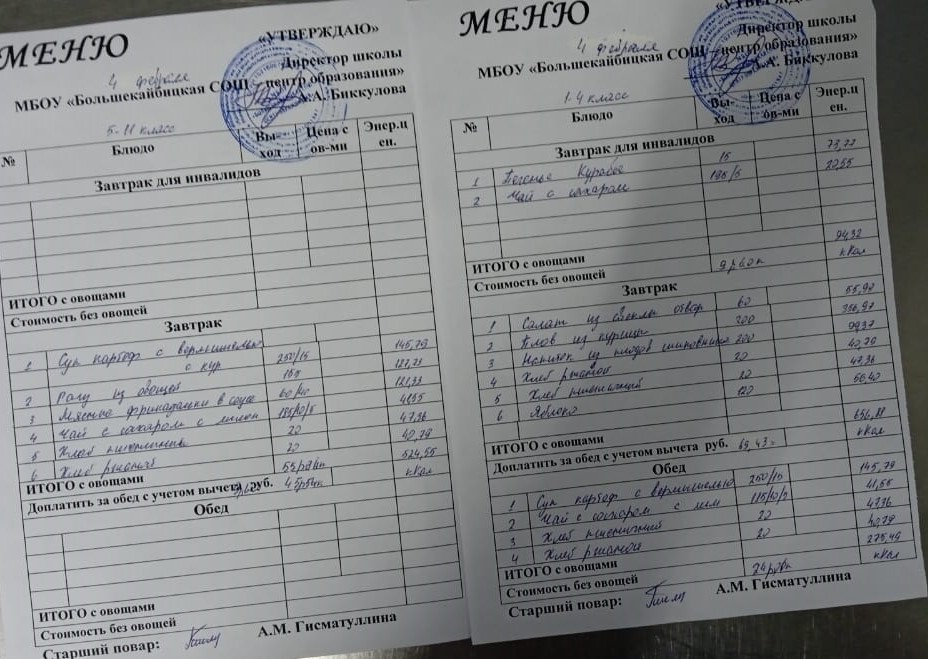 МЕНЮ
«УТВЕРЖДАЮ»
Директор школы
4 февраля
МБОУ «Большекайбицкая СОШ - центр образования»
А.А. Биккулова
5-11 класс
№ Блюдо Вы-ход Цена с ов-ми Энер.ц ен.
Завтрак для инвалидов
ИТОГО с овощами
Стоимость без овощей
Завтрак
1 Суп картоф с вермишелью с кур 250/15 145,79
2 Рагу из овощей
3 Мясные фрикадельки в соусе
4 Чай с сахаром с лимон 41,55
5 Хлеб пшеничный 20 47,36
6 Хлеб ржаной 20 40,79
ИТОГО с овощами 524,55
Доплатить за обед с учетом вычета руб. кКал
Обед
ИТОГО с овощами
Стоимость без овощей
Старший повар: А.М. Гисматуллина
МЕНЮ
«УТВЕРЖДАЮ»
Директор школы
4 февраля
МБОУ «Большекайбицкая СОШ - центр образования»
А. Биккулова
1-4 класс
№ Блюдо Вы-ход Цена с ов-ми Энер.ц ен.
Завтрак для инвалидов
1 Печенье Курабье 15 73,77
2 Чай с сахаром 195/5 20,55
ИТОГО с овощами 94,32
Стоимость без овощей 9р60к кКал
Завтрак
1 Салат из свеклы отвар 60 55,92
2 Плов из курицы 200 356,97
3 Напиток из плодов шиповника 200 99,37
4 Хлеб ржаной 20 40,79
5 Хлеб пшеничный 20 47,36
6 Яблоко 120 56,40
ИТОГО с овощами
Доплатить за обед с учетом вычета руб. 69,43 кКал
Обед
1 Суп картоф с вермишелью 250/15 145,79
2 Чай с сахаром с лим 41,55
3 Хлеб пшеничный 20 47,36
4 Хлеб ржаной 20 40,79
ИТОГО с овощами 275,49
Стоимость без овощей кКал
Старший повар: А.М. Гисматуллина